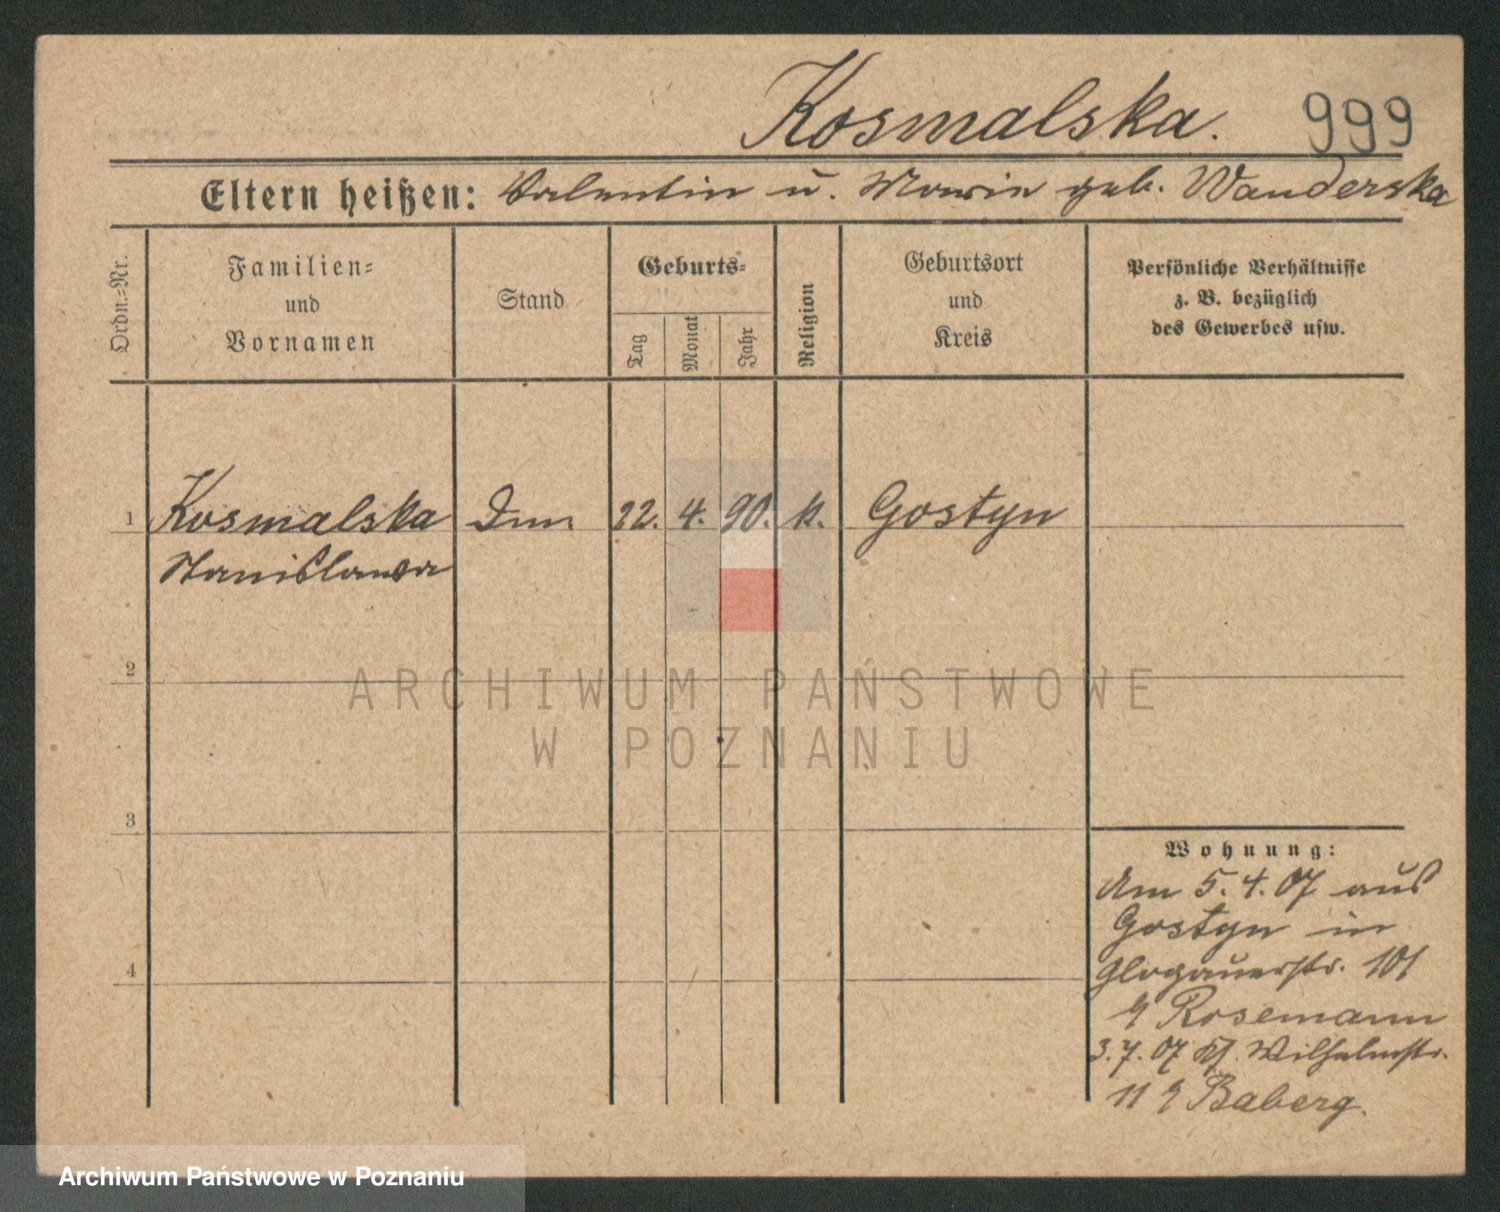 Kosmalska. 999
Eltern heißen: Valentin u. Marie geb. Wanderska
Ordn.-Nr.
Familien- und Vornamen
Stand
Geburts-
Tag
Monat
Jahr
Religion
Geburtsort und Kreis
Persönliche Verhältnisse
z. B. bezüglich
des Gewerbes usw.
1 Kosmalska 22. 4. 90. k. Gostyn
Stanislawa
2
ARCHIWUM PAŃSTWOWE
W POZNANIU
3
Wohnung:
Am 5.4.07 aus
Gostyn in
4
Glogauerstr. 101
Rosemann
3.7.07 Wilhelmstr.
11 Baberg.
Archiwum Państwowe w Poznaniu